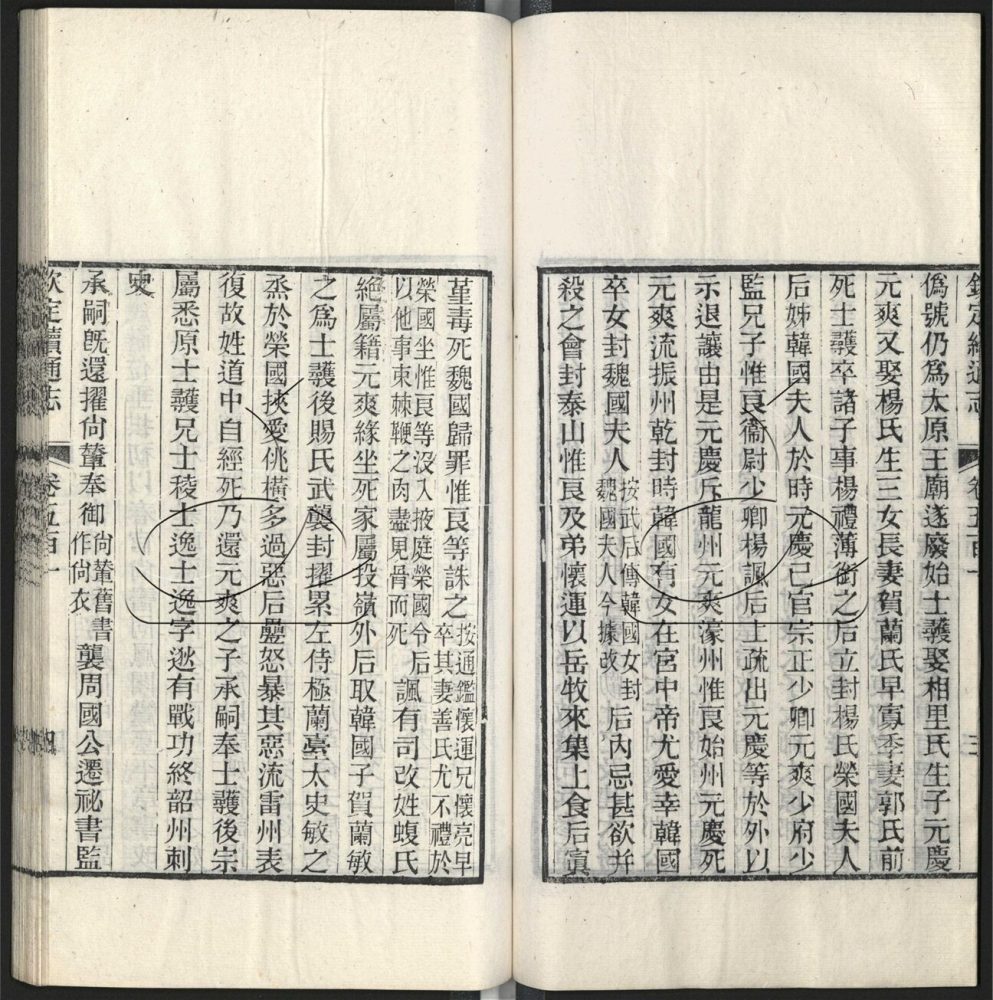 欽定續通志 卷五百一 三
偽號仍爲太原王廟遂廢始士彠娶相里氏生子元慶
元爽又娶楊氏生三女長妻賀蘭氏早寡季妻郭氏前
死士彠卒諸子事楊禮薄銜之后立封楊氏榮國夫人
后姊韓國夫人於時元慶已官宗正少卿元爽少府少
監兄子惟良衞尉少卿楊諷后上疏出元慶等於外以
示退讓由是元慶斥龍州元爽濠州惟良始州元慶死
元爽流振州乾封時韓國有女在宮中帝尤愛幸韓國
卒女封魏國夫人按武后傳韓國女封魏國夫人今據改后內忌甚欲并
殺之會封泰山惟良及弟懷運以岳牧來集上食后寘
堇毒死魏國歸罪惟良等誅之按通鑑懷運兄懷亮早卒其妻善氏尤不禮於
榮國坐惟良等沒入掖庭榮國令后以他事束棘鞭之肉盡見骨而死諷有司改姓蝮氏
絶屬籍元爽緣坐死家屬投嶺外后取韓國子賀蘭敏
之爲士彠後賜氏武襲封擢累左侍極蘭臺太史敏之
烝於榮國挾愛佻橫多過惡后疊怒暴其惡流雷州表
復故姓道中自經死乃還元爽之子承嗣奉士彠後宗
屬悉原士彠兄士稜士逸士逸字逖有戰功終韶州刺
史
承嗣旣還擢尙輦奉御尙輦舊書作尙衣襲周國公遷祕書監
欽定續通志 卷五百一 四